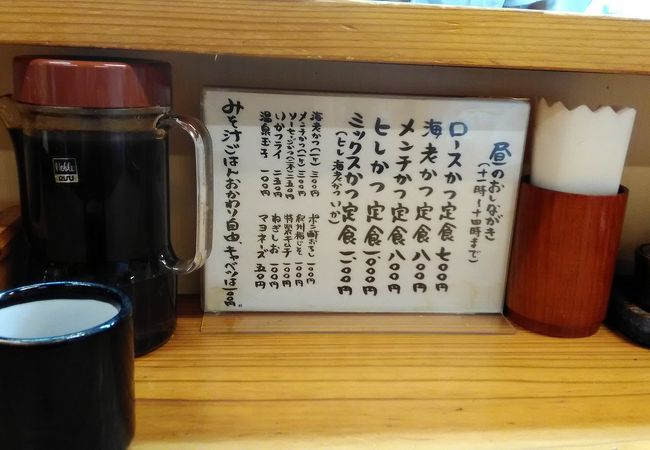 昼のおしながき
(十一時〜十四時まで)
ロースかつ定食 七〇〇円
海老かつ定食 八〇〇円
メンチかつ定食 八〇〇円
ヒレかつ定食 一、〇〇〇円
ミックスかつ定食 一、〇〇〇円
(ヒレ 海老かつ いか)
海老かつ(一ヶ) 三〇〇円
メンチかつ(一ヶ) 三〇〇円
ソーセージかつ(一本) 二五〇円
いかフライ 二五〇円
温泉玉子 一〇〇円
ポン酢おろし 一〇〇円
紀州梅じそ 一〇〇円
特製キムチ 一〇〇円
ねぎしお 一〇〇円
マヨネーズ 五〇円
みそ汁ごはんおかわり自由、キャベツは一〇〇円
Noble
RISU